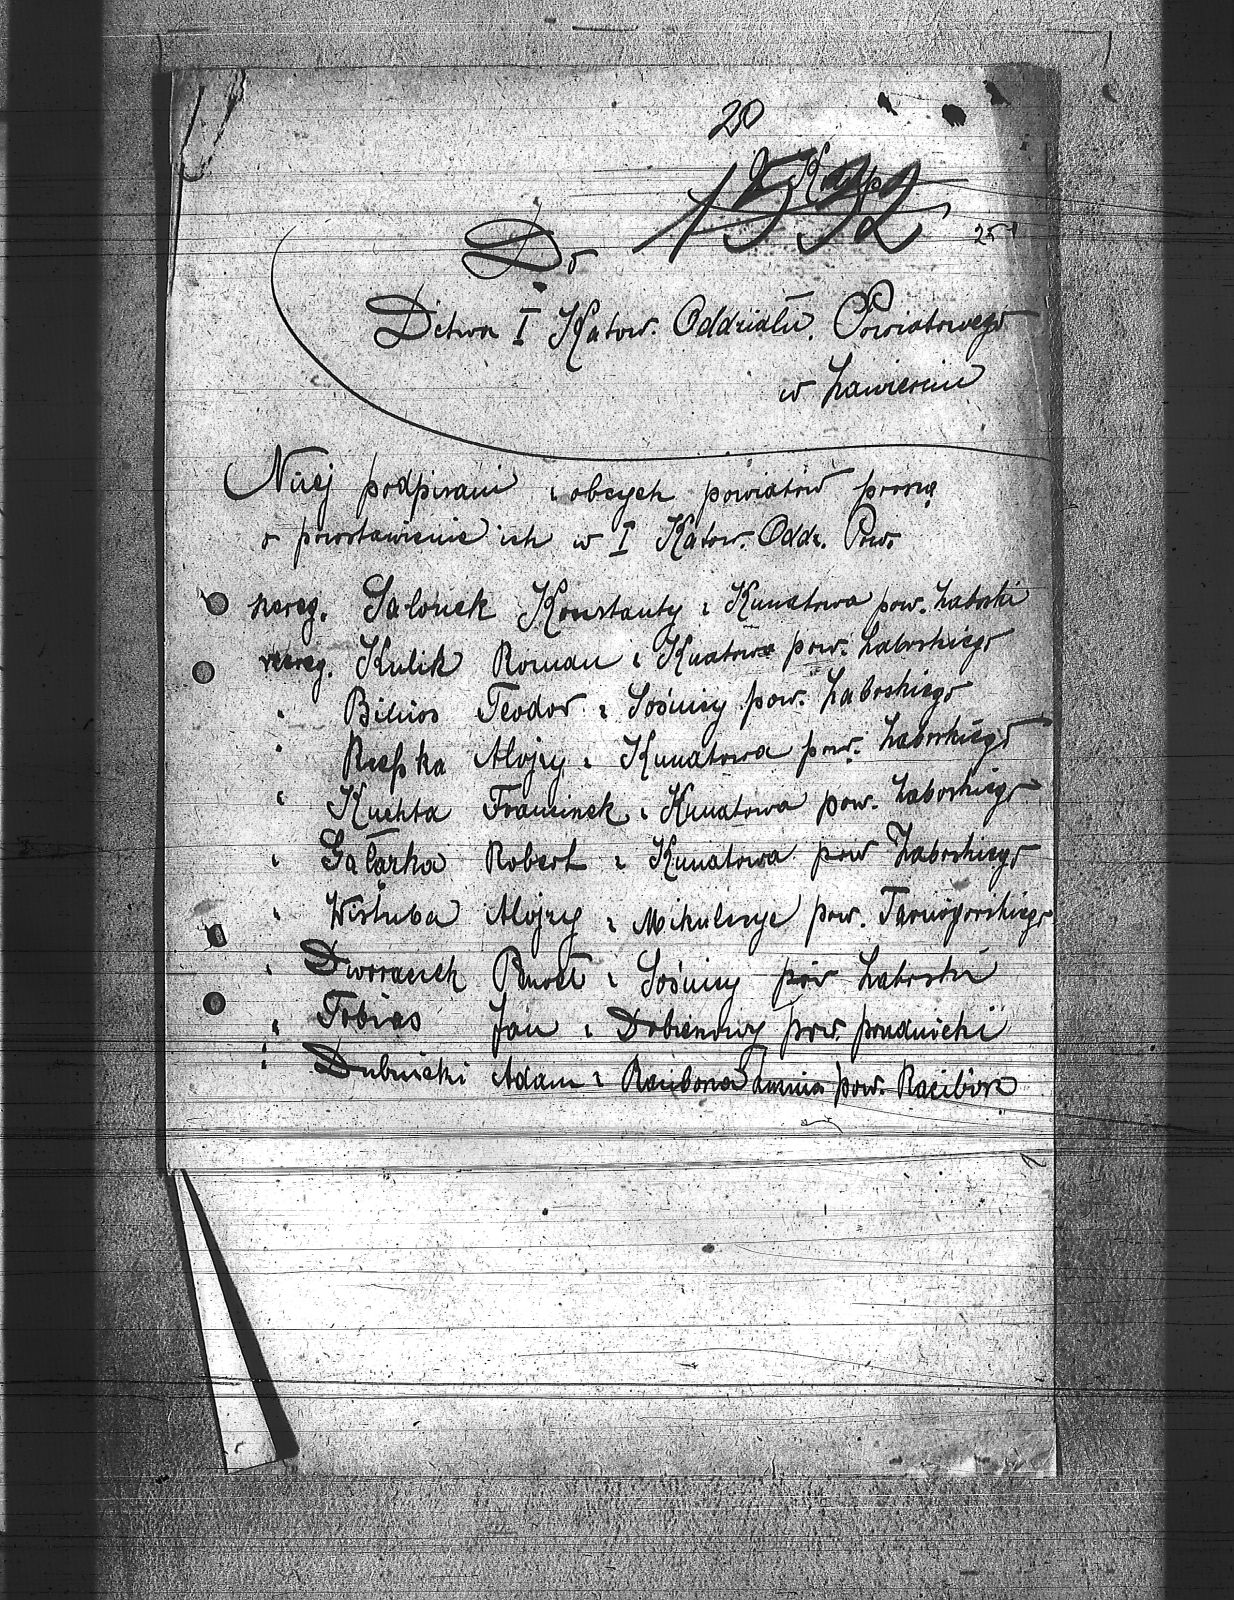 20
1532
25
Do
Dctwa I Katow. Oddziału Powiatowego
w Zawierciu
Niżej podpisani z obcych powiatów proszą
o pozostawienie ich w I Katow. Oddz. Pow.
szereg. Galonek Konstanty z Kunatowa pow. Zabrski
szereg. Kulik Roman z Knatowa pow. Zaborskiego
" Teodor z Sośnicy pow. Zaborskiego
" Rzepka Alojzy z Kunatowa pow. Zaborskiego
" Kuchta Franciszek z Kunatowa pow. Zaborskiego
" Gałązka Robert z Kunatowa pow Zaborskiego
" Wistuba Alojzy z Mikulczyc pow. Tarnogórskiego
" Dworaczek z Sośnicy pow Zabrski
" Tobias Jan z pow. prudnicki
" Dubnicki Adam z pow. Racibórz